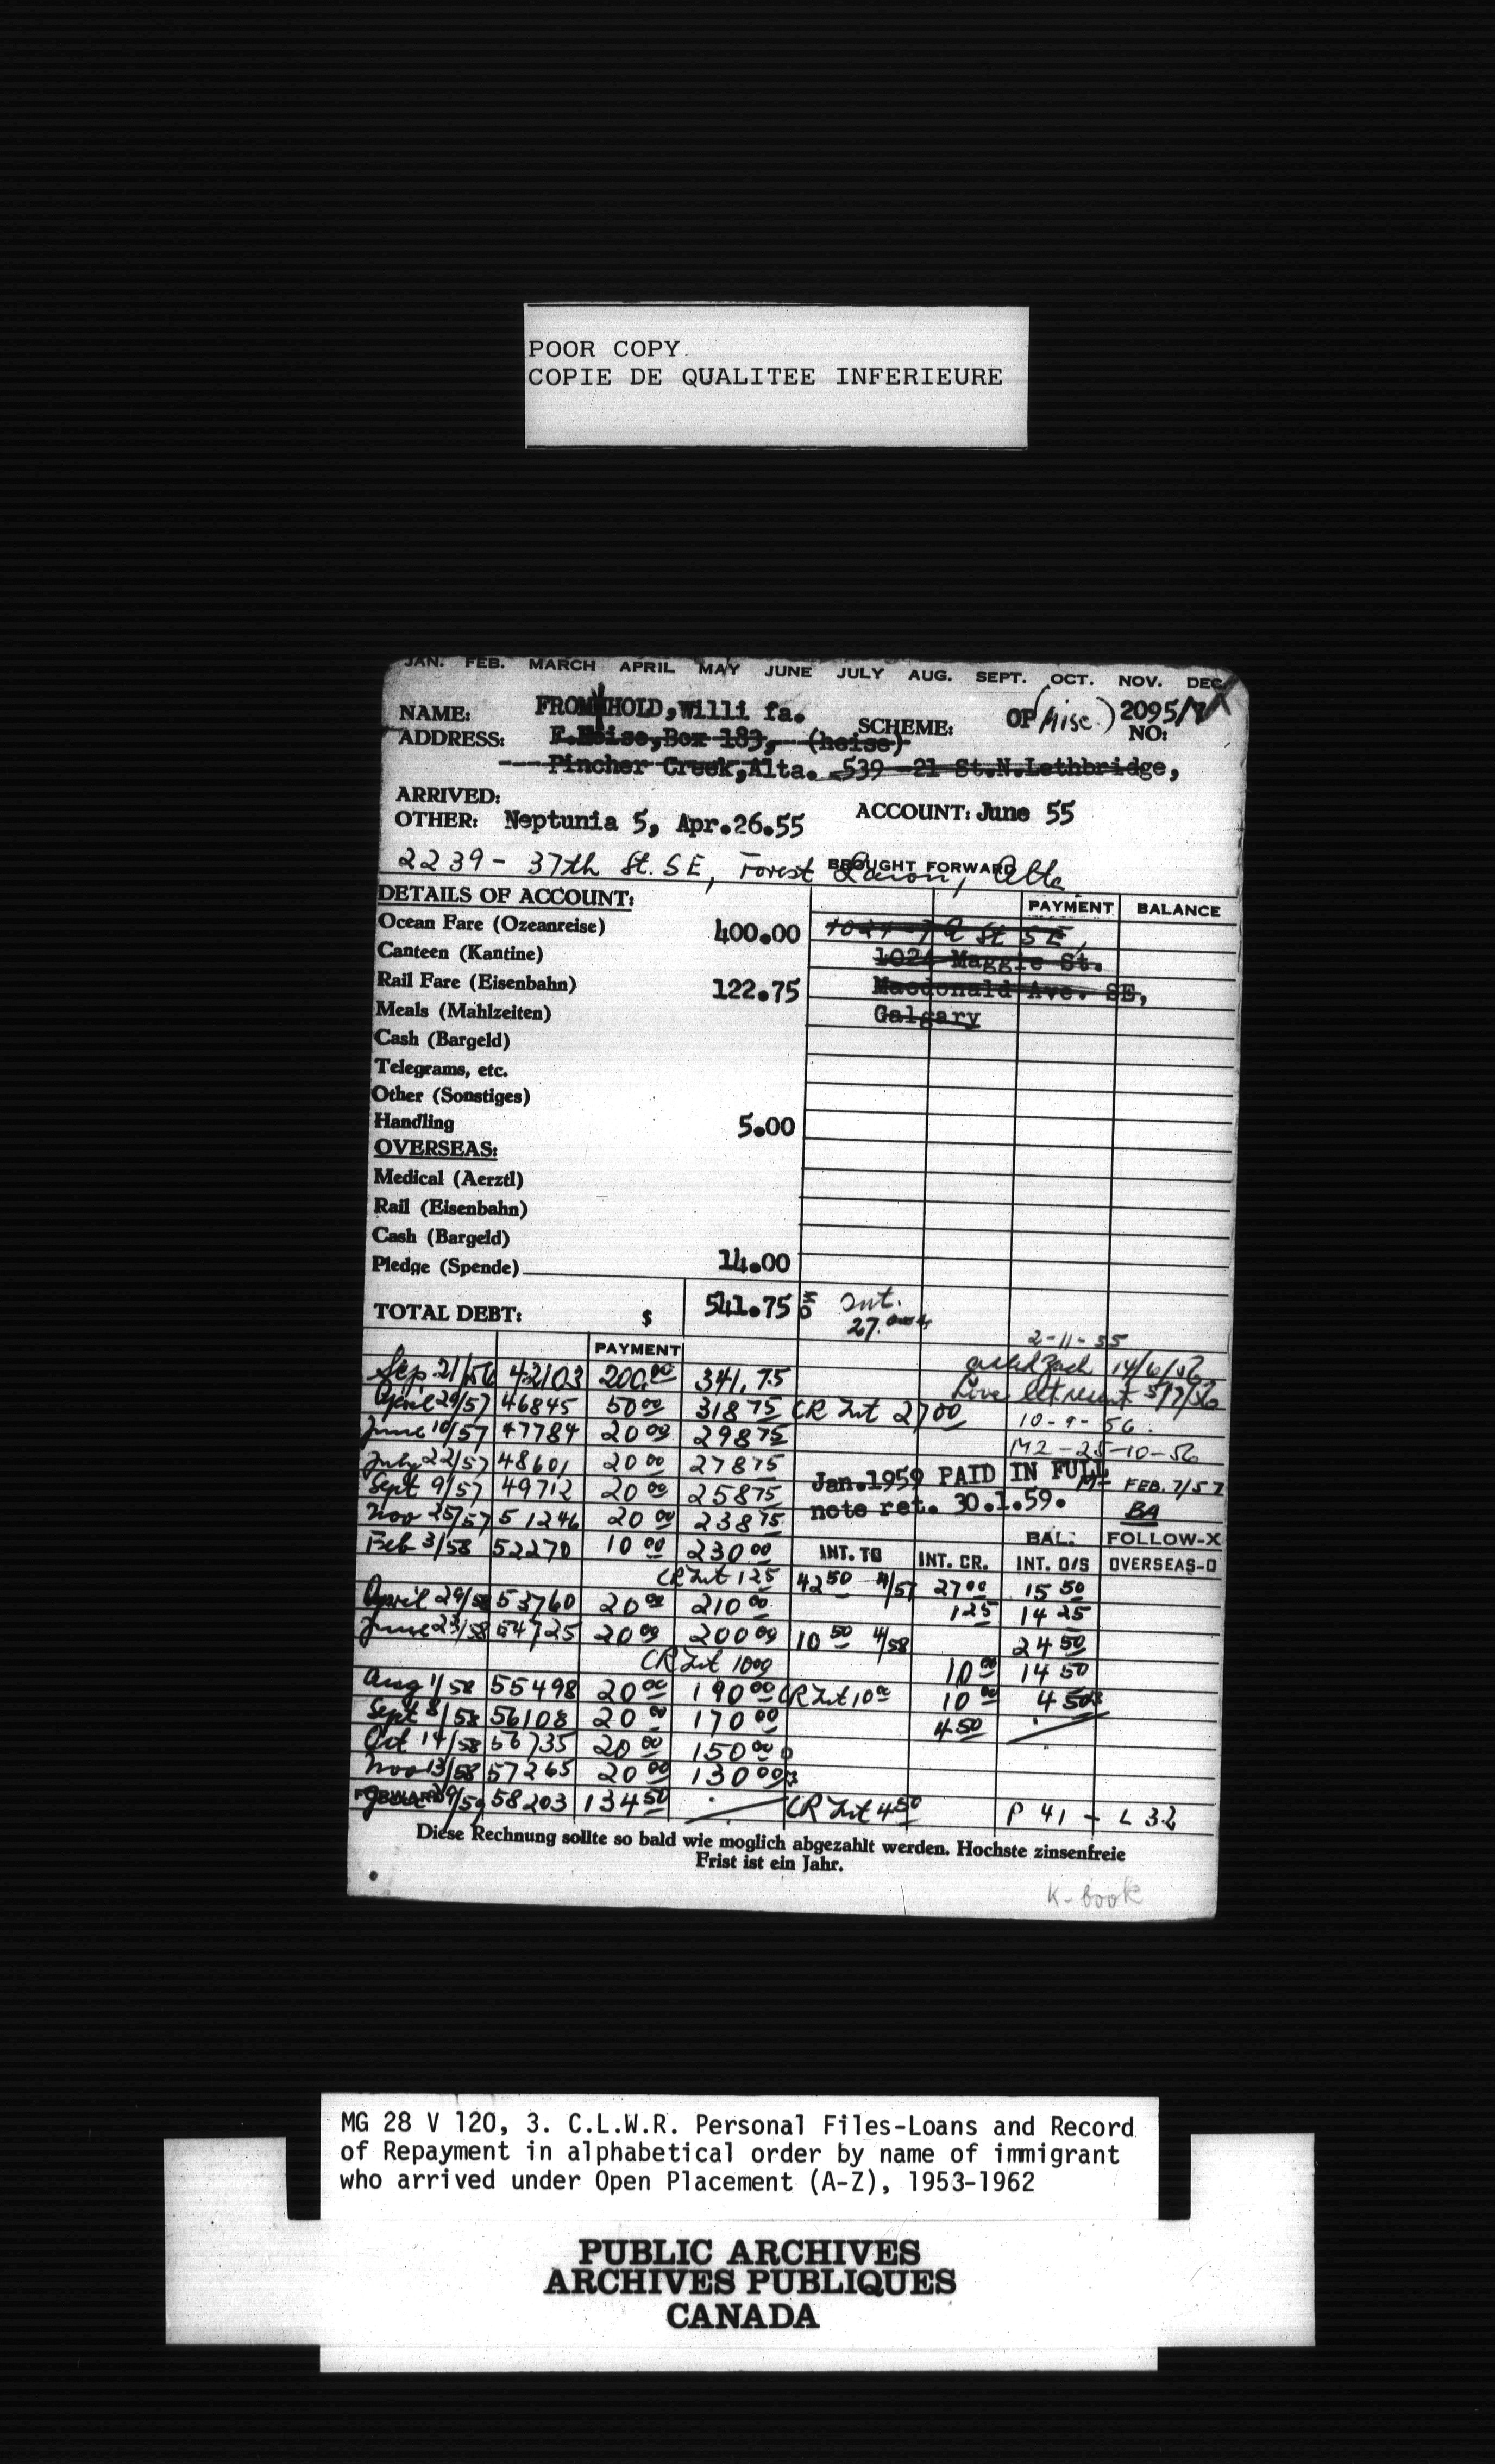 POOR COPY.
COPIE DE QUALITEE INFERIEURE
JAN. FEB. MARCH APRIL MAY JUNE JULY AUG. SEPT. OCT. NOV. DEC.
NAME: FROMHOLD, Willi fa. SCHEME: OP (Misc.) 2095/ NO:
ADDRESS: F.Heise, Box 183, (heise)
Pincher Creek, Alta. 539 -21 St.N.Lethbridge,
ARRIVED:
OTHER: Neptunia 5, Apr.26.55 ACCOUNT: June 55
BROUGHT FORWARD
2239 - 37th St. SE, Forest Alta
DETAILS OF ACCOUNT: PAYMENT BALANCE
Ocean Fare (Ozeanreise) 400.00 1024 - St SE,
Canteen (Kantine) 1024 Maggie St.
Rail Fare (Eisenbahn) 122.75 Macdonald Ave. SE,
Meals (Mahlzeiten) Calgary
Cash (Bargeld)
Telegrams, etc.
Other (Sonstiges)
Handling 5.00
OVERSEAS:
Medical (Aerztl)
Rail (Eisenbahn)
Cash (Bargeld)
Pledge (Spende) 14.00
TOTAL DEBT: $ 541.75 Int.
27.
2-11-55
PAYMENT
Sep 21/56 42103 200.00 341.75 14/6/56
April 29/57 46845 50 00 318 75 CR Int 27 00 5/7/56
June 10/57 47784 20 00 298 75 10-9-56.
July 22/57 48601 20 00 278 75 M2-25-10-56
Sept 9/57 49712 20 00 258 75 Jan.1959 PAID IN FULL FEB. 7/57
Nov 25/57 51246 20 00 238 75 note ret. 30.1.59. BA
Feb 3/58 52270 10 00 230 00 INT. TO INT. CR. BAL. INT. O/S FOLLOW-X OVERSEAS-O
CR Int 1 25 42 50 4/57 27 00 15 50
April 29/58 53760 20 00 210 00 1 25 14 25
June 23/58 54725 20 00 200 00 10 50 4/58 24 50
CR Int 10 00 10 00 14 50
Aug 1/58 55498 20 00 190 00 CR Int 10 00 10 00 4 50
Sept 8/58 56108 20 00 170 00 4 50
Oct 14/58 56735 20 00 150 00
Nov 13/58 57265 20 00 130 00
FORWARD 29/59 58203 134 50 CR Int 4 50 P 41 - L 32
Diese Rechnung sollte so bald wie moglich abgezahlt werden. Hochste zinsenfreie
Frist ist ein Jahr.
K-book
MG 28 V 120, 3. C.L.W.R. Personal Files-Loans and Record
of Repayment in alphabetical order by name of immigrant
who arrived under Open Placement (A-Z), 1953-1962
PUBLIC ARCHIVES
ARCHIVES PUBLIQUES
CANADA